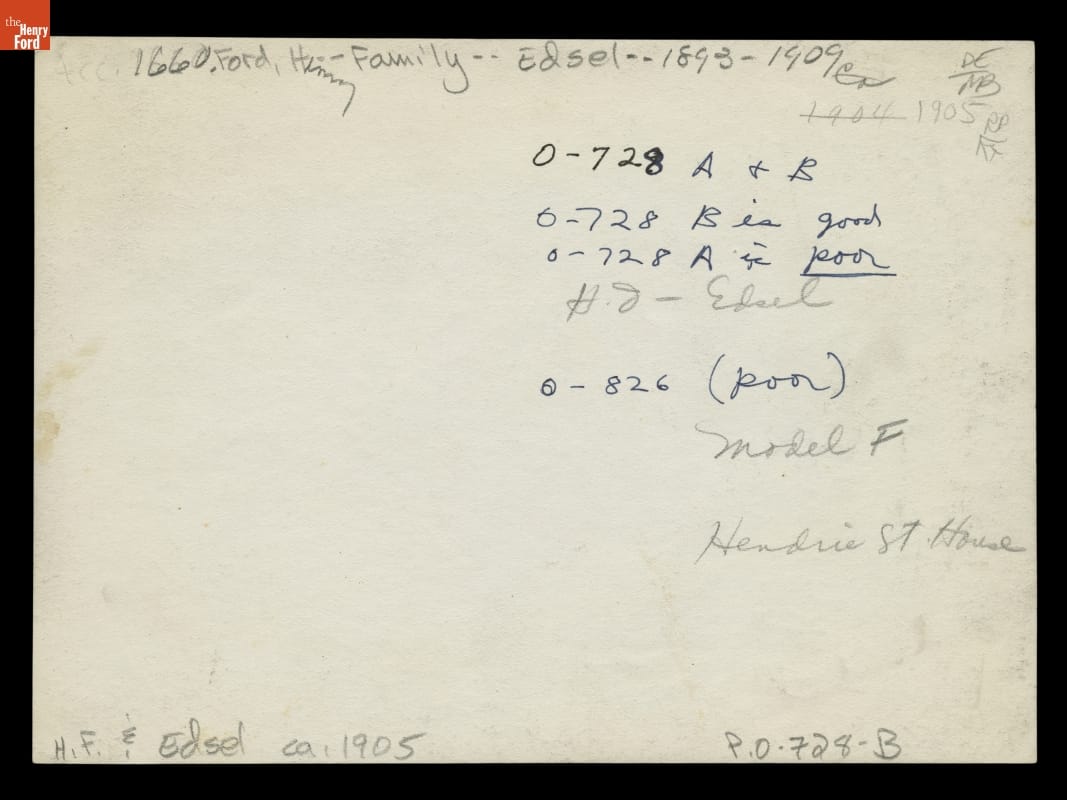 the
Henry
Ford
Acc. 1660. Ford, Henry--Family-- Edsel--1893-1909
Ca
DE
MB
1904 1905
0-728 A + B
0-728 B is good
0-728 A is poor
H.F - Edsel
0-826 (poor)
Model F
Hendrie St. House
H.F. & Edsel ca. 1905
P.O.728-B